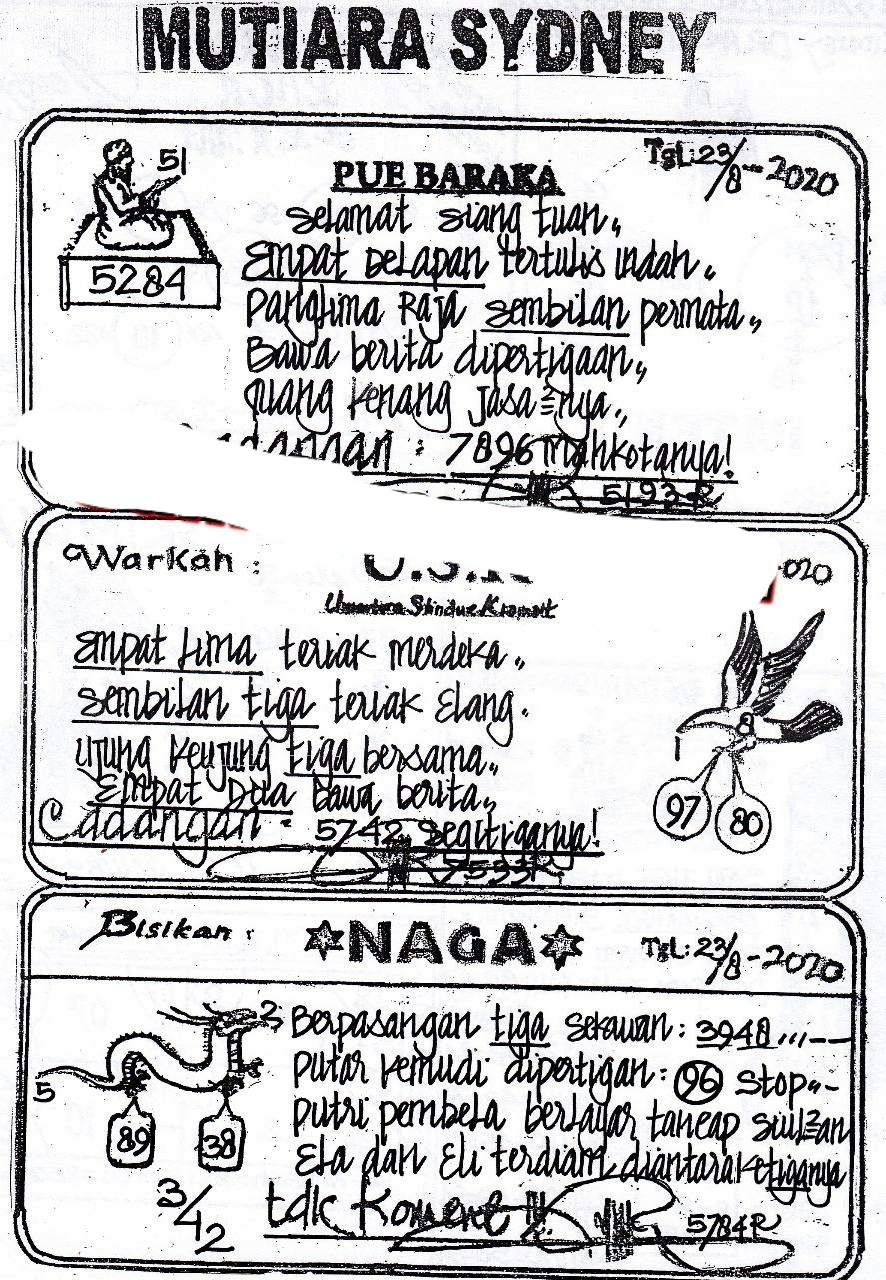 MUTIARA SYDNEY
51
PUE BARAKA
TGL: 23/8-2020
5284
Selamat siang tuan,,
Empat Delapan tertulis indah,,
Panglima Raja sembilan permata,,
Bawa berita dipertigaan,,
kenang Jasa nya,,
: 7896 Mahkotanya!
5193R
Warkah :
020
Empat Lima teriak merdeka,,
Sembilan tiga teriak Elang.
Ujung keujung tiga bersama,,
Empat Dua Bawa berita,,
Cadangan : 5742 Segitiganya!
97
80
Bisikan :
NAGA
TGL: 23/8-2020
2
5
89
38
3/42
Berpasangan tiga sekawan : 3948
Putar kemudi dipertigan : 96 Stop
Putri pembela berlayar tancap
Ela dan Eli terdiam diantara ketiganya
tdk Komene !!
5784R